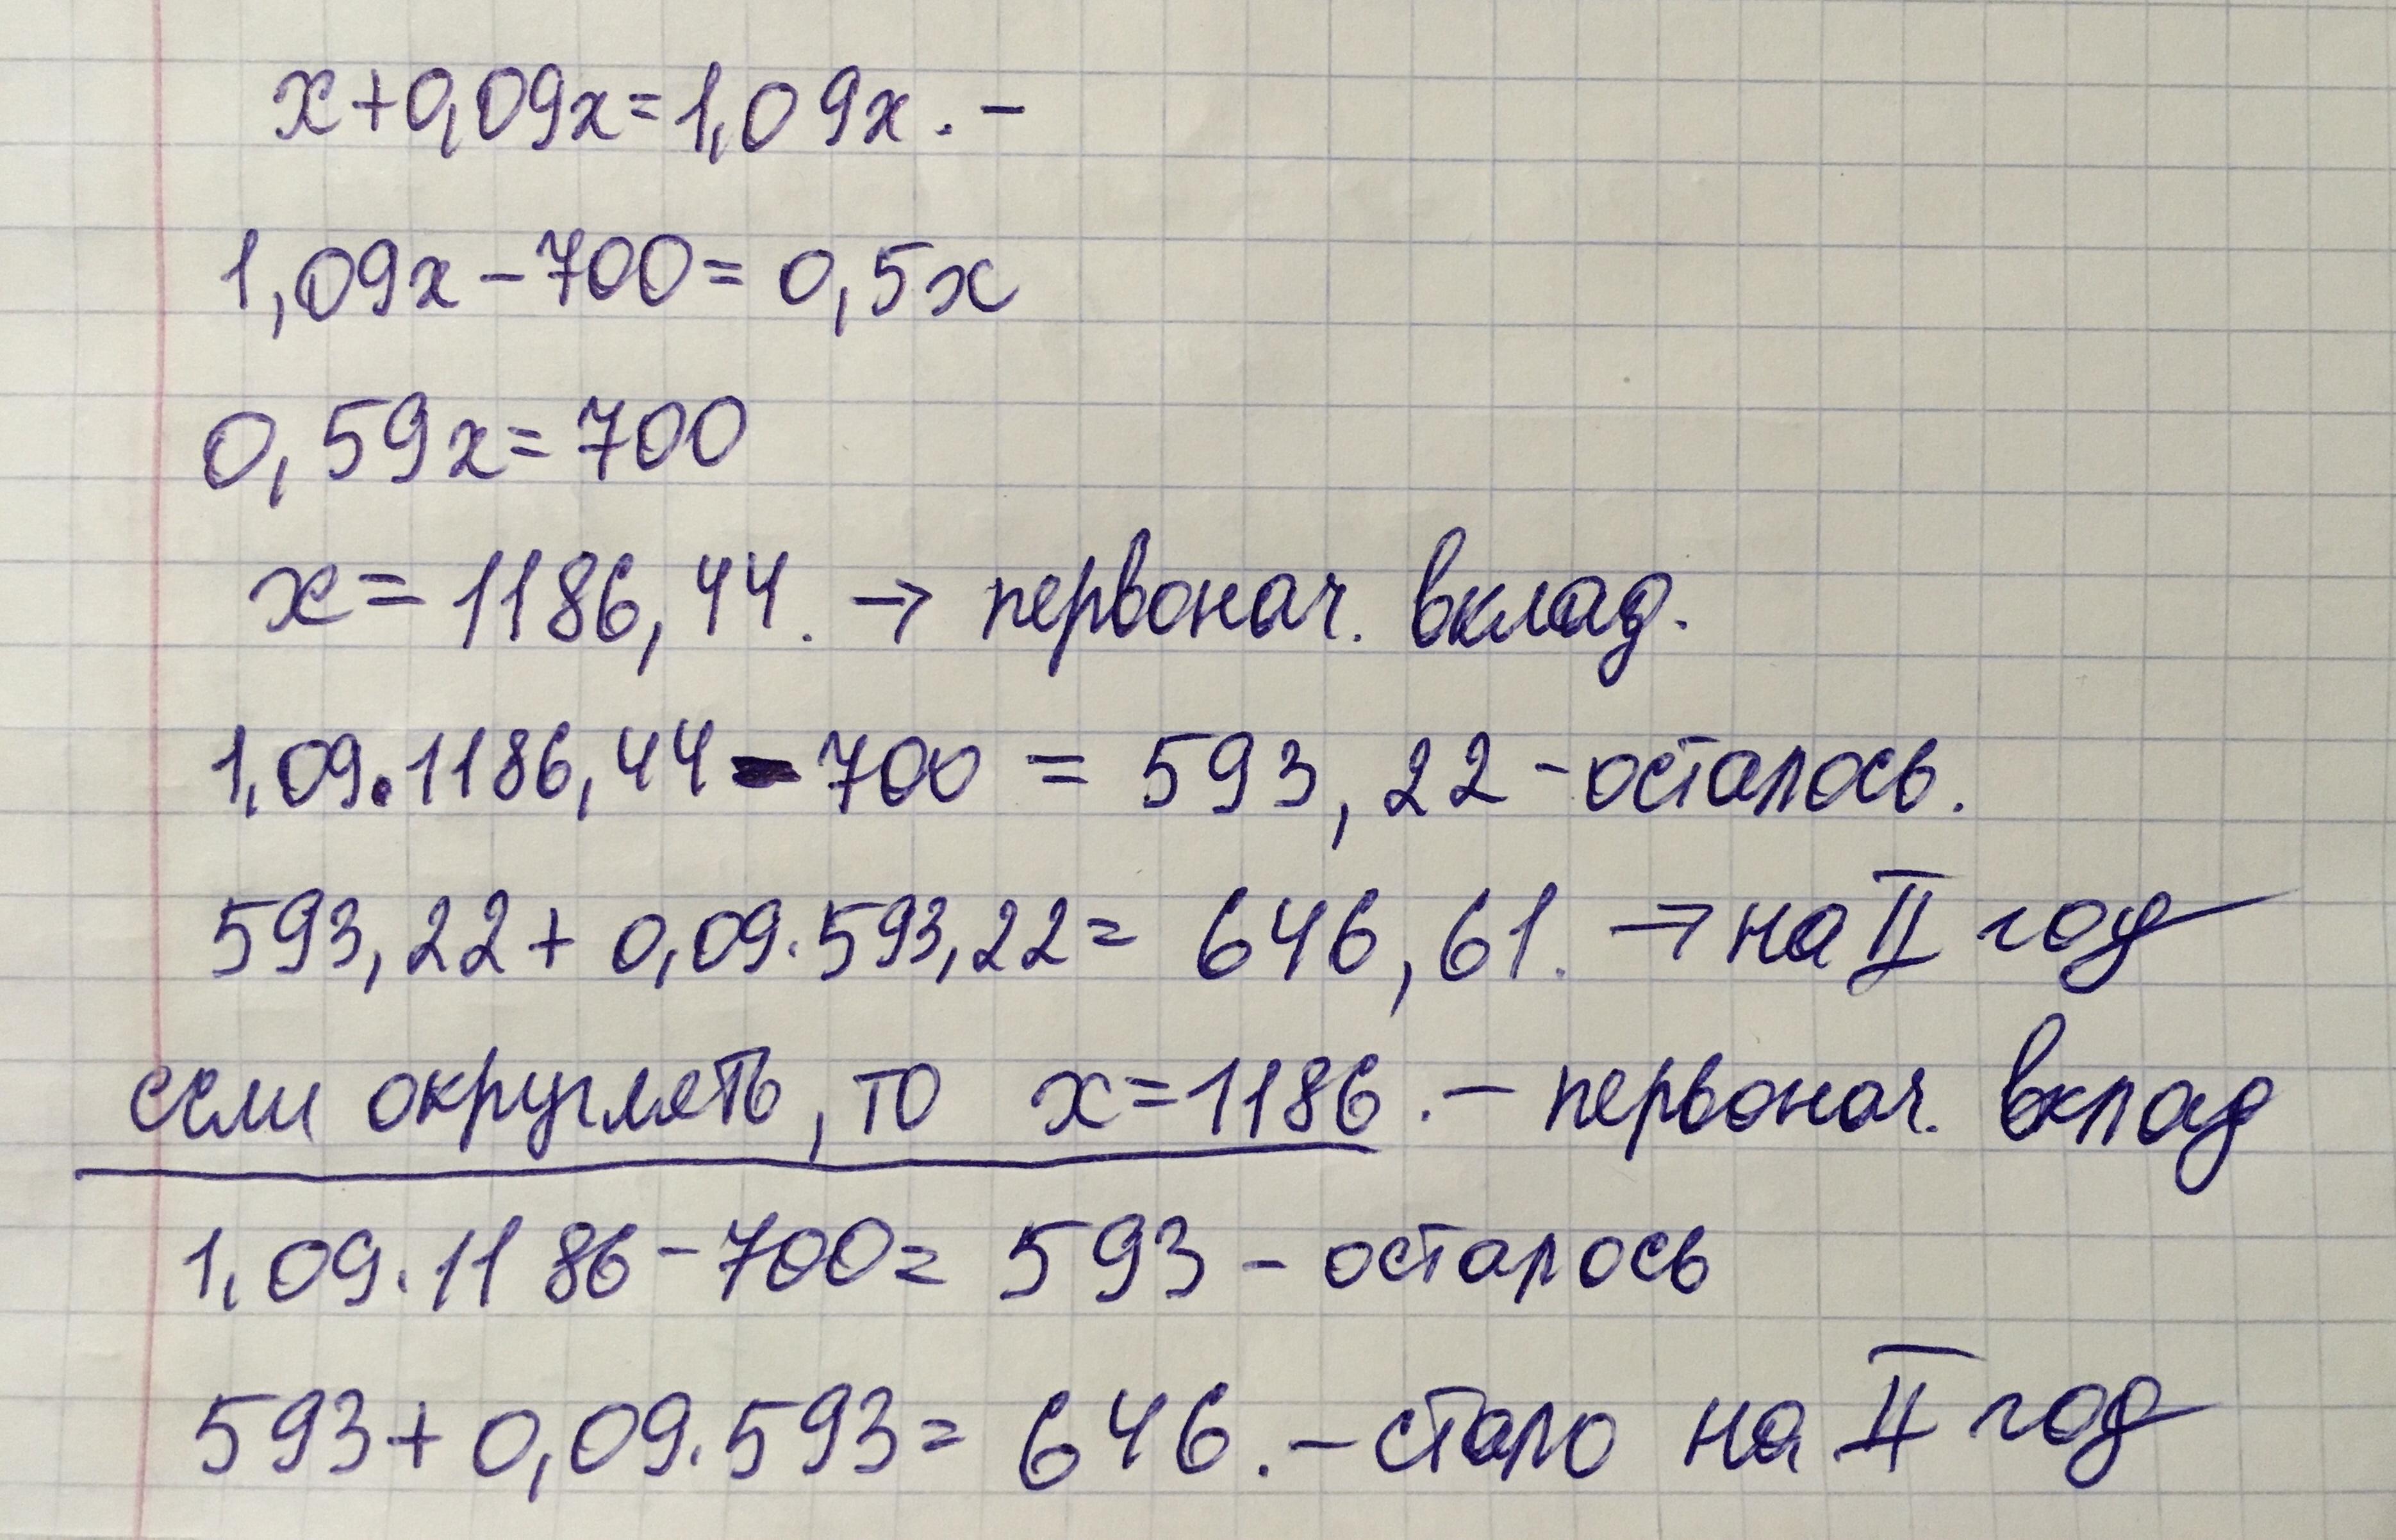 x+0,09x=1,09x. -
1,09x-700=0,5x
0,59x=700
x=1186,44. → первонач. вклад.
1,09·1186,44-700 = 593,22-осталось.
593,22+0,09·593,22= 646,61. → на II год
если округлять, то x=1186.- первонач. вклад
1,09·1186-700= 593 - осталось
593+0,09·593= 646. - стало на II год